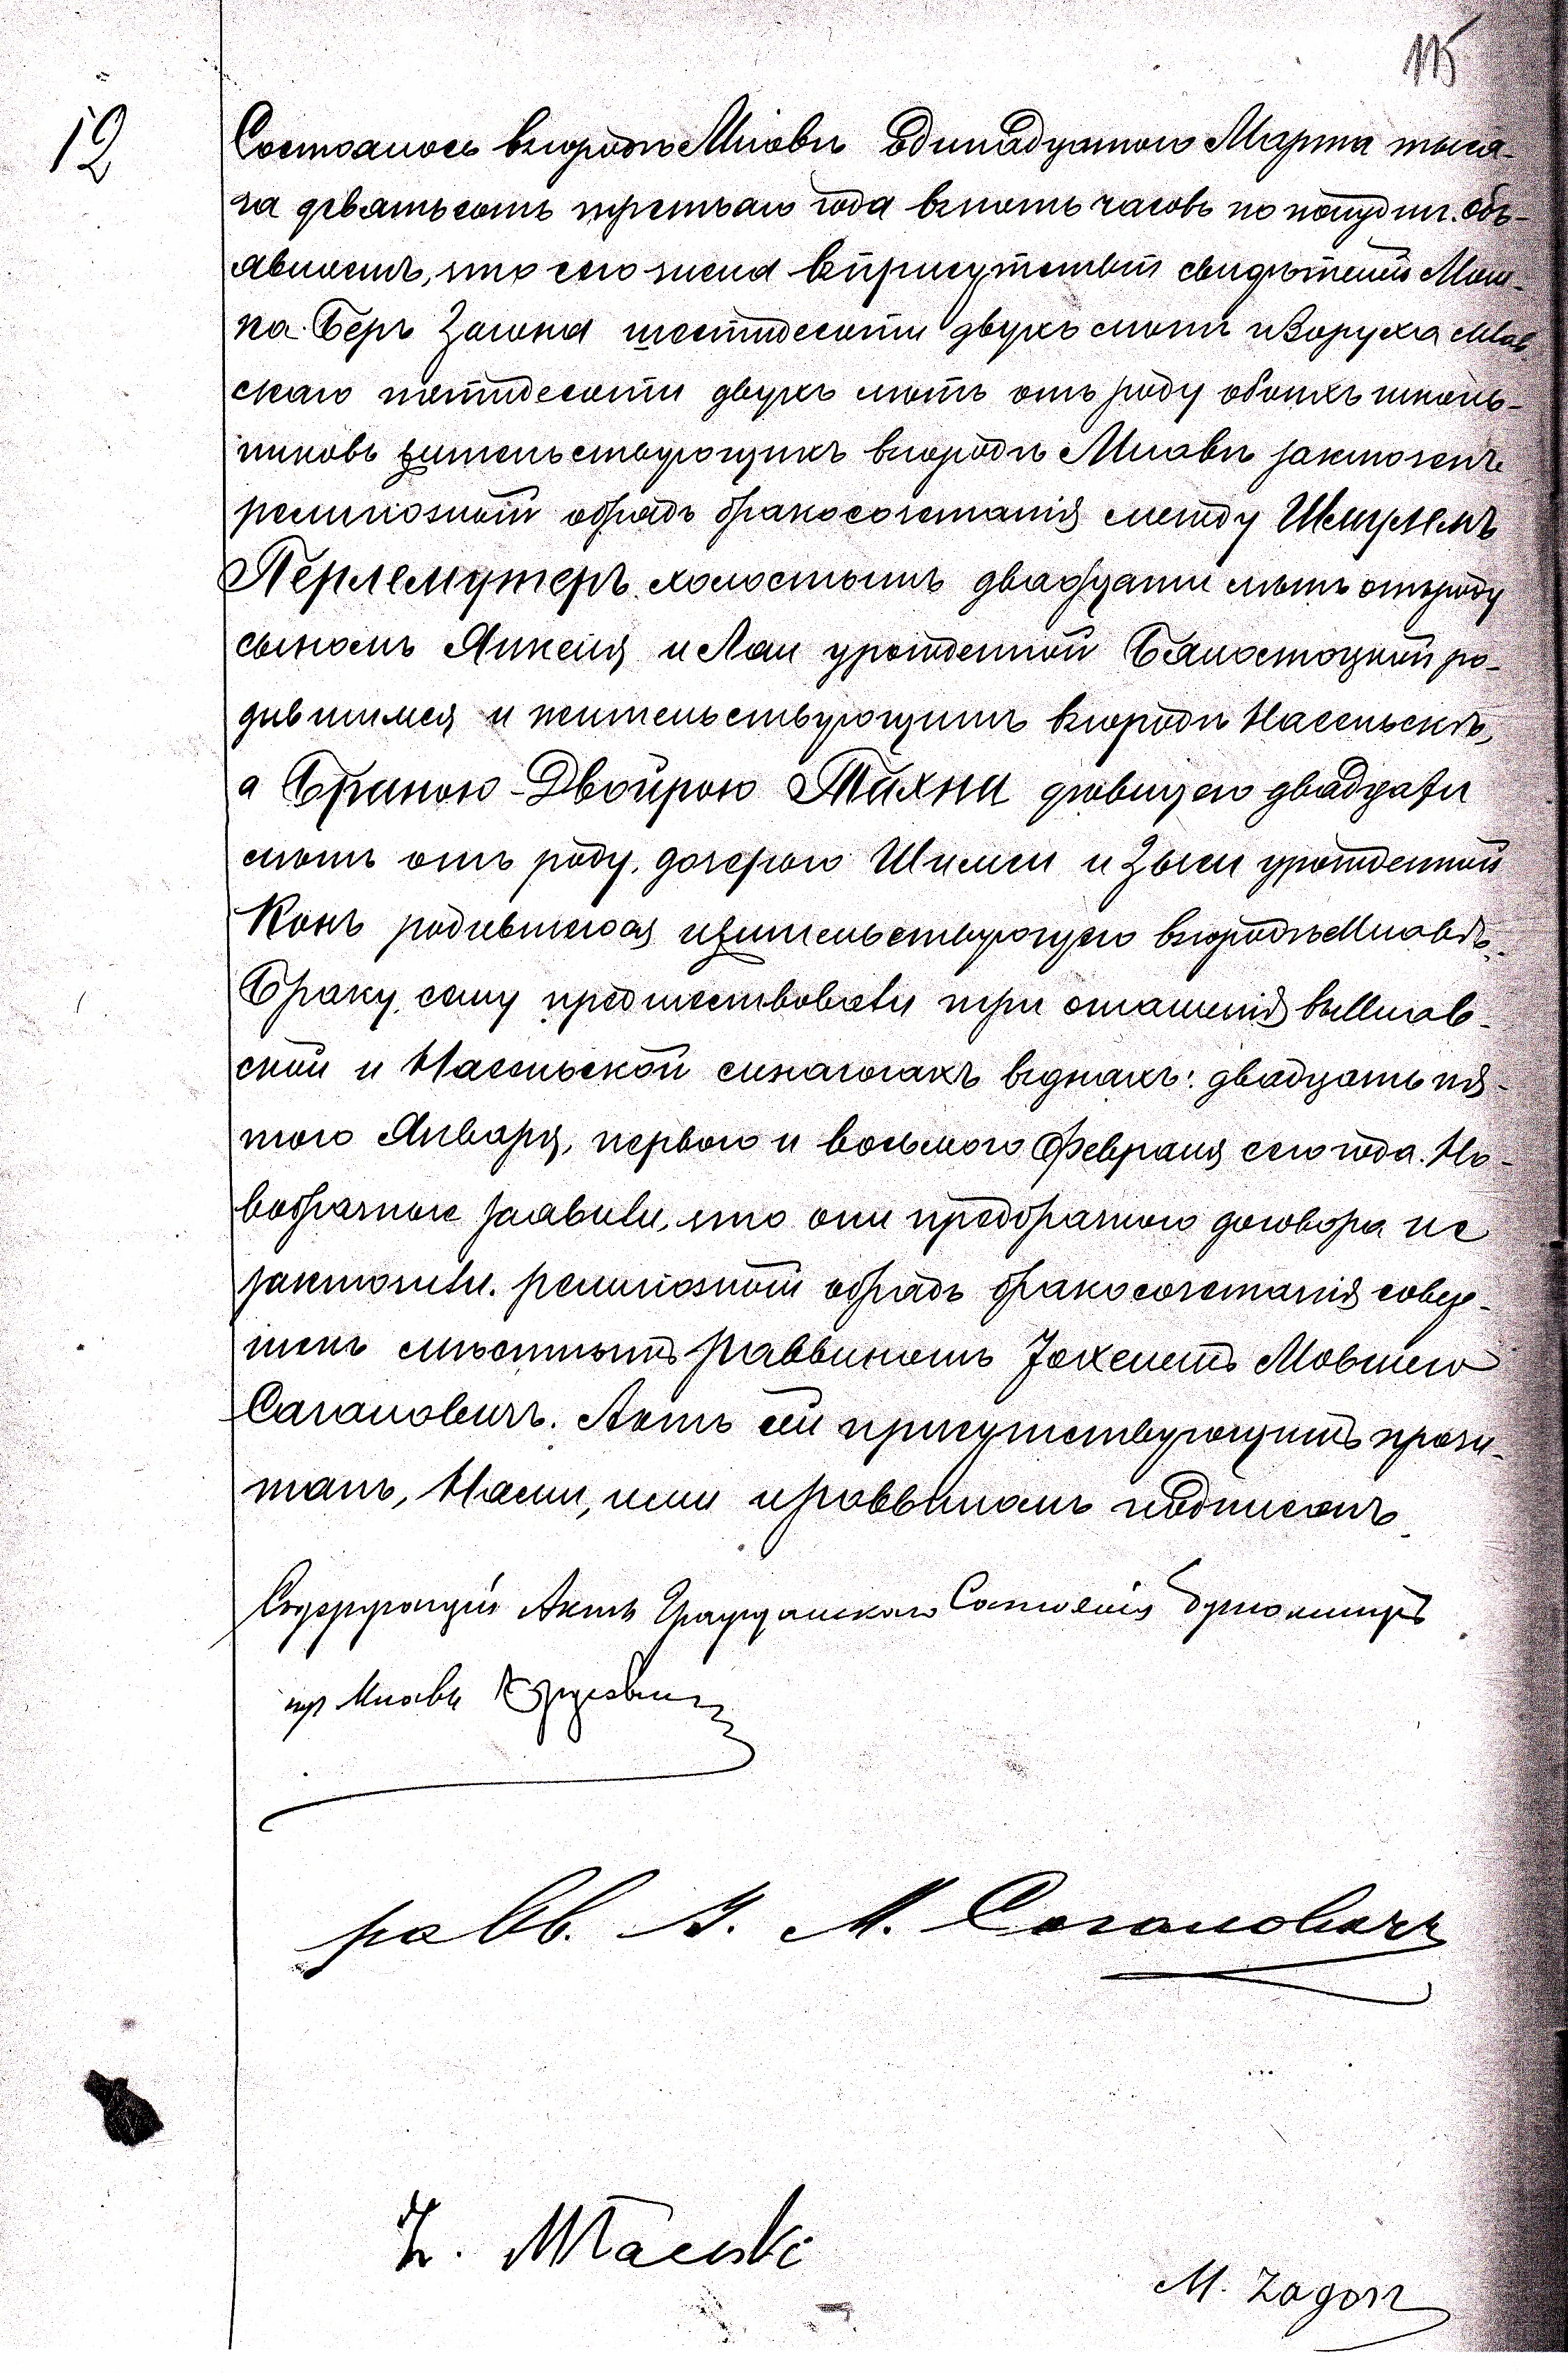 115
12
Состоялось въ городѣ Млавѣ Одинадцатого Марта тыся-
ча девятьсотъ третьяго года въ пять часовъ по полудни. Объ-
являемъ, что сего числа въ присутствіи свидѣтелей Мош-
ка-Беръ Загона шестидесяти двухъ лѣтъ и Боруха Млав-
скаго пятидесяти двухъ лѣтъ отъ роду обоихъ школь-
никовъ жительствующихъ въ городѣ Млавѣ заключенъ
религіозный обрядъ бракосочетанія между Шмулемъ
Перлемутеръ холостымъ двадцати лѣтъ отъ роду
сыномъ Янкеля и Лаи урожденной Бялостоцкой ро-
дившимся и жительствующимъ въ городѣ Насельскѣ,
а Браною-Двойрою Тихни дѣвицею двадцати
лѣтъ отъ роду, дочерью Шимси и Зыси урожденной
Конъ родившеюся и жительствующею въ городѣ Млавѣ.
Браку сему предшествовали три оглашенія въ Млав-
ской и Насельской синагогахъ въ дняхъ: двадцать пя-
того Января, перваго и восьмого Февраля сего года. Но-
вобрачные заявили, что они предбрачного договора не
заключили. религіозный обрядъ бракосочетанія совер-
шенъ мѣстнымъ раввиномъ Іохелемъ Мовшею
Сагаловичъ. Актъ сей присутствующимъ прочи-
танъ, Нами, ими и раввиномъ подписанъ.
Содержующій Актъ Гражданскаго Состоянія Бургомистръ
гор Млавы
равв. І. М. Сагаловичъ
Z. Mławski
M. Zagon